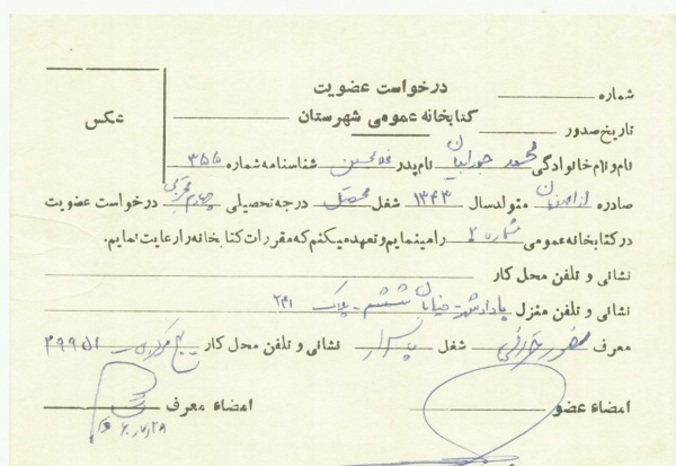 درخواست عضویت
شماره
عکس
کتابخانه عمومی شهرستان
تاریخ صدور
نام و نام خانوادگی محمد نام پدر غلامحسین شناسنامه شماره ۳۵۵
صادره از اصفهان متولد سال ۱۳۴۳ شغل محصل درجه تحصیلی چهارم تجربی درخواست عضویت
در کتابخانه عمومی شماره ۲ را مینمایم و تعهد میکنم که مقررات کتابخانه را رعایت نمایم.
نشانی و تلفن محل کار
نشانی و تلفن منزل پاداشهر - خیابان ششم - پلاک ۲۴۱
معرف شغل پاسدار نشانی و تلفن محل کار ۲۹۹۵۱
امضاء عضو
امضاء معرف